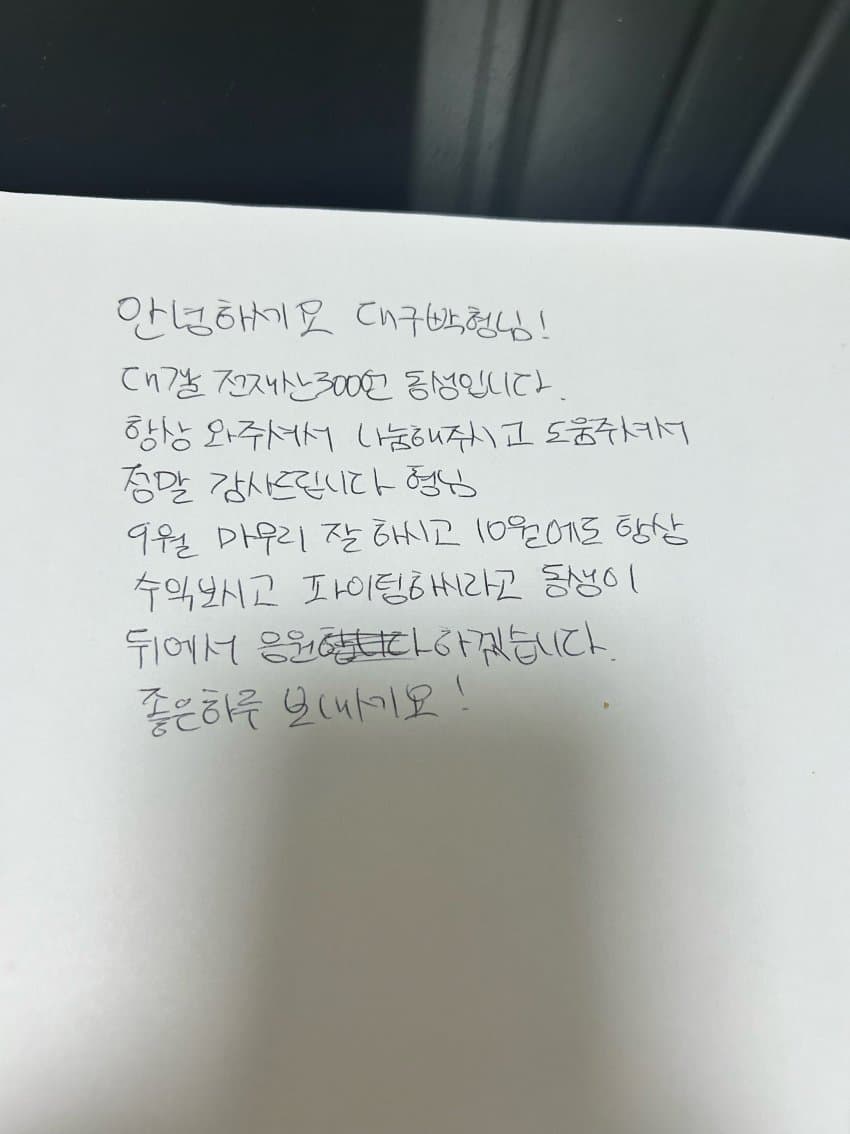 안녕하세요 대구박형님!
대갤 전재산300언 동성입니다.
항상 와주셔서 나눔해주시고 도움주셔서
정말 감사드립니다 형님
9월 마무리 잘 하시고 10월에도 항상
수익보시고 파이팅하시라고 동생이
뒤에서 응원합니다하겠습니다.
좋은하루 보내세요!